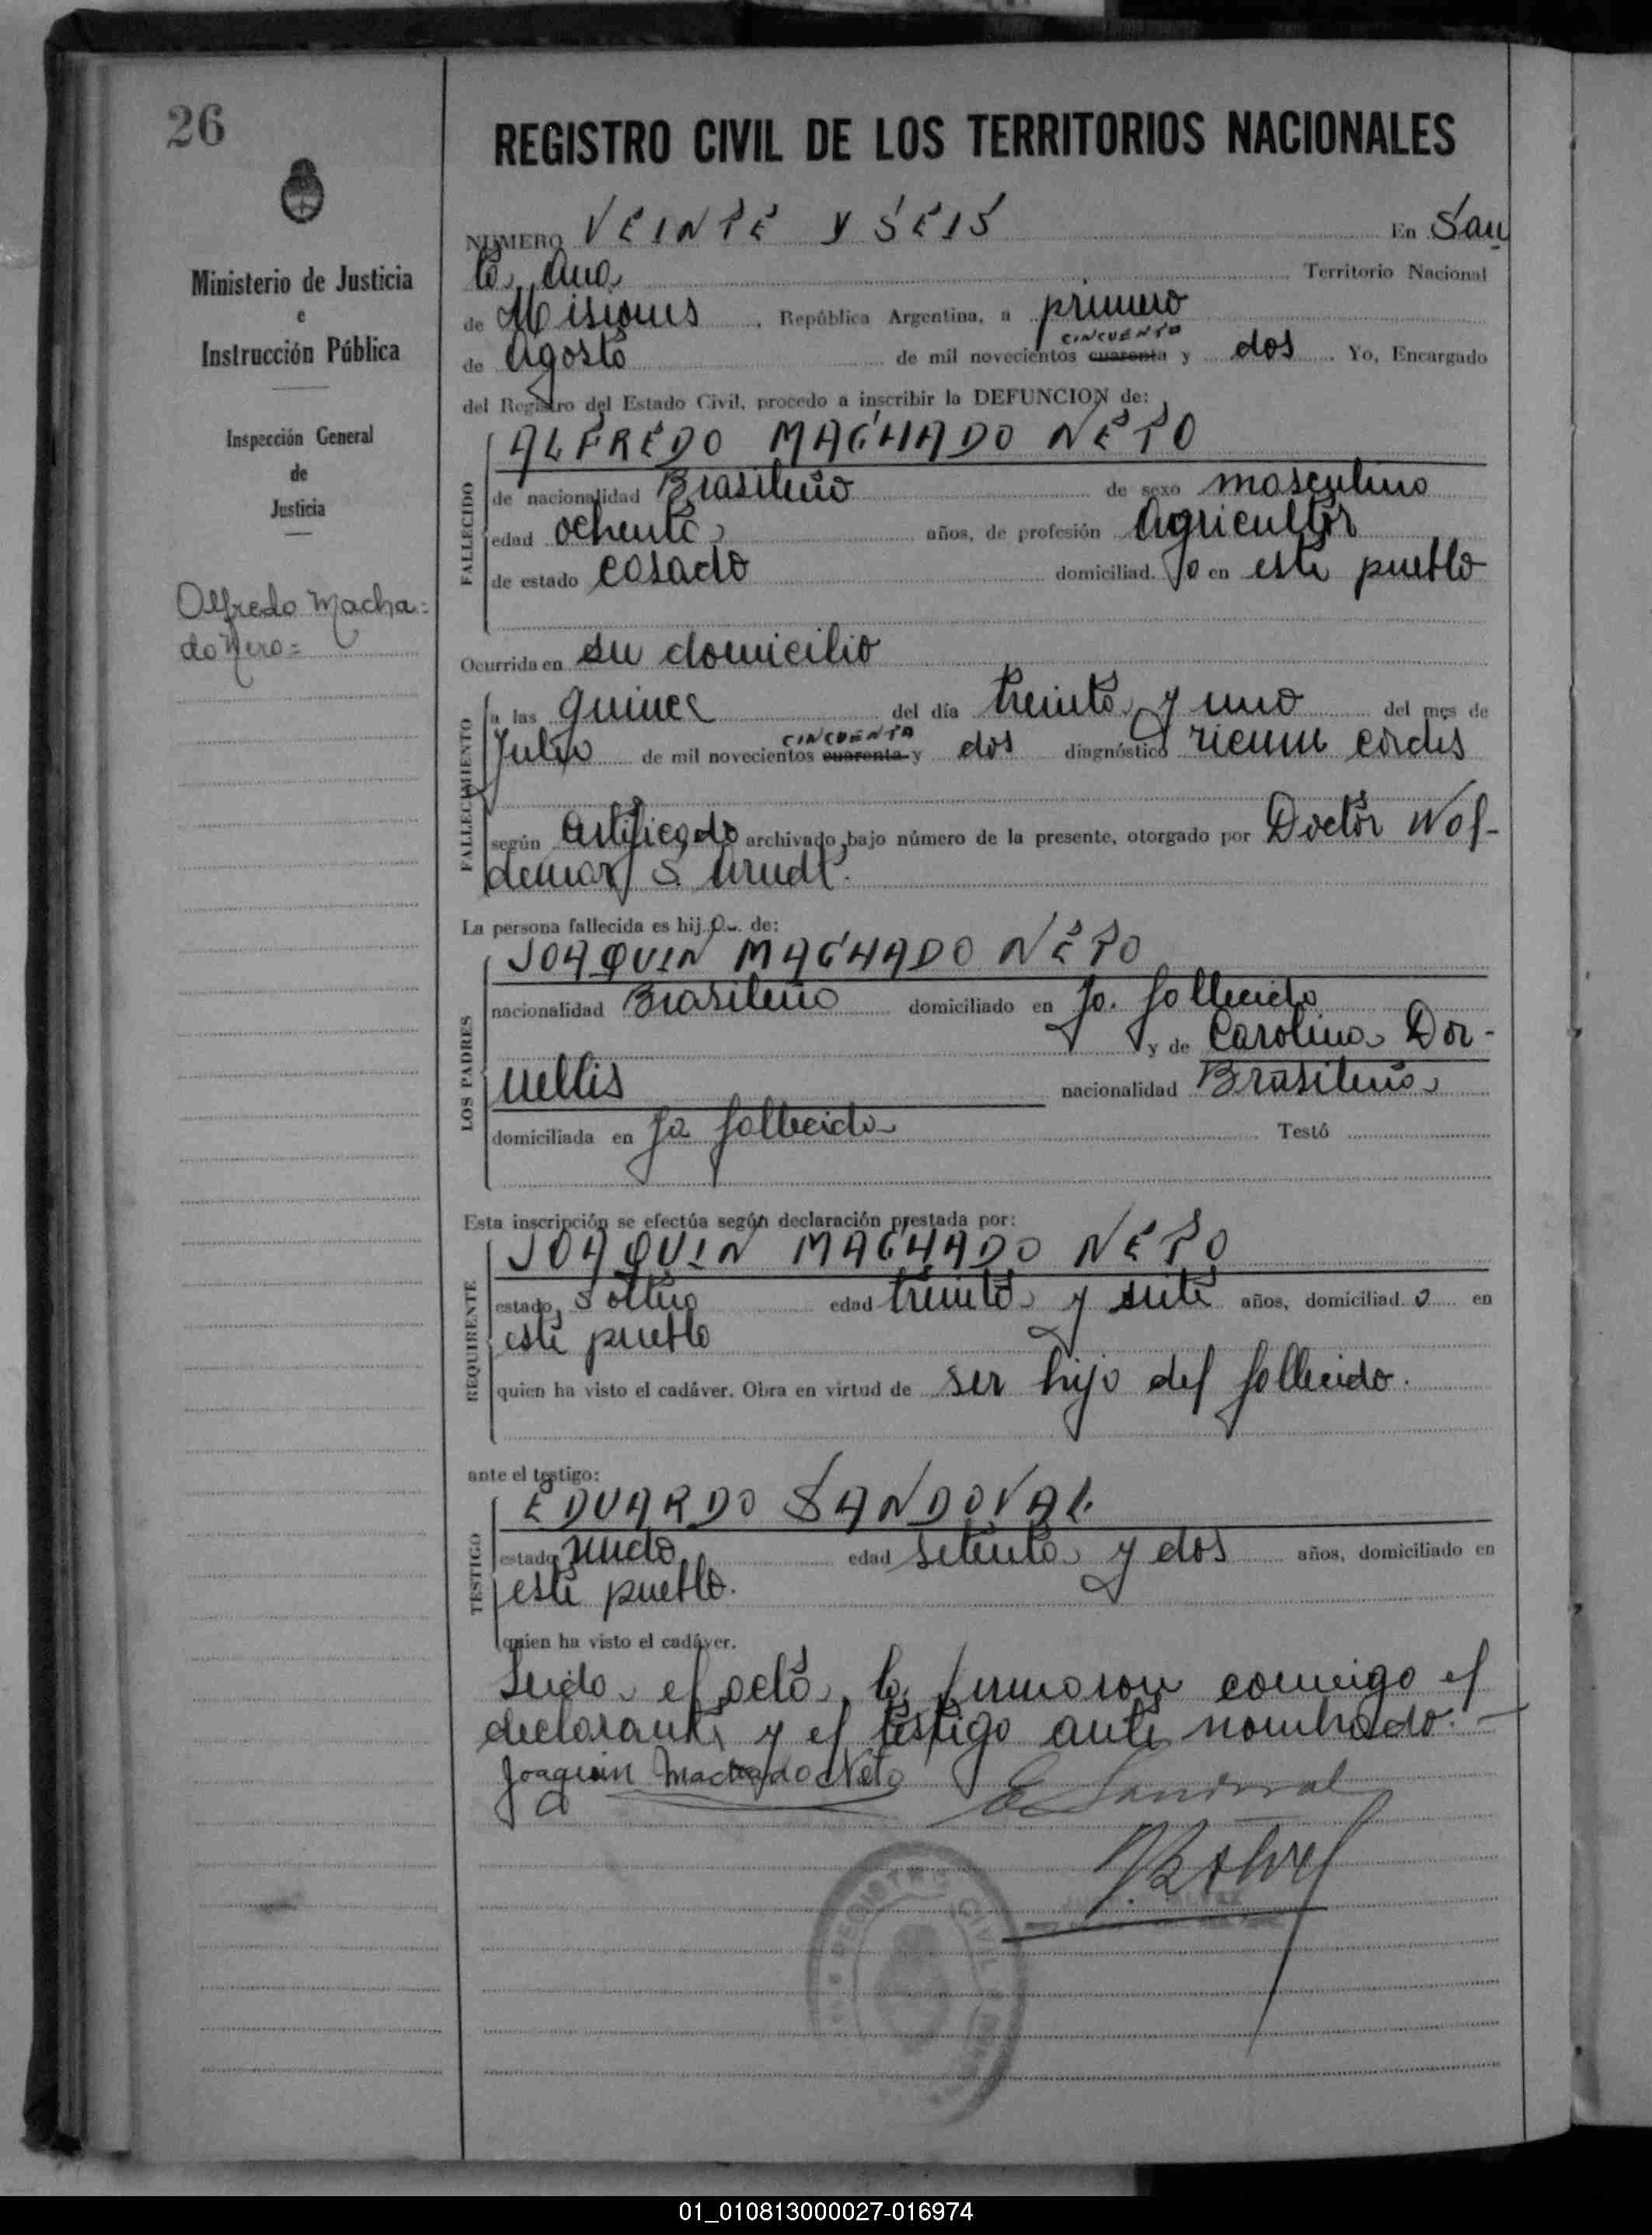 26
REGISTRO CIVIL DE LOS TERRITORIOS NACIONALES
Ministerio de Justicia
e
Instrucción Pública
Inspección General
de
Justicia
Alfredo Macha=
do Nero=
NUMERO VEINTE Y SEIS En San
ta Ana Territorio Nacional
de Misiones, República Argentina, a primero
CINCUENTA
de Agosto de mil novecientos cuarenta y dos. Yo, Encargado
del Registro del Estado Civil, procedo a inscribir la DEFUNCION de:
FALLECIDO
ALFREDO MACHADO NETO
de nacionalidad Brasileño de sexo masculino
edad ochenta años, de profesión Agricultor
de estado casado domiciliad.o en este pueblo
Ocurrida en su domicilio
FALLECIMIENTO
a las quince del día treinta y uno del mes de
CINCUENTA
Julio de mil novecientos cuarenta y dos diagnóstico cordis
según certificado archivado bajo número de la presente, otorgado por Doctor Wol-
demar S. Arndt.
La persona fallecida es hij.o. de:
LOS PADRES
JOAQUIN MACHADO NETO
nacionalidad Brasileño domiciliado en ya fallecido
y de Carolina Dor-
nellis nacionalidad Brasileña
domiciliada en ya fallecida Testó
Esta inscripción se efectúa según declaración prestada por:
REQUIRENTE
JOAQUIN MACHADO NETO
estado, soltero edad treinta y siete años, domiciliad o en
este pueblo
quien ha visto el cadáver. Obra en virtud de ser hijo del fallecido.
ante el testigo:
TESTIGO
EDUARDO SANDOVAL
estado viudo edad setenta y dos años, domiciliado en
este pueblo.
quien ha visto el cadáver.
Leida el acta, la firmaron conmigo el
declarante y el testigo ante nombrado.-
Joaquin Machado Neto E Sandoval
REGISTRO CIVIL
01_010813000027-016974